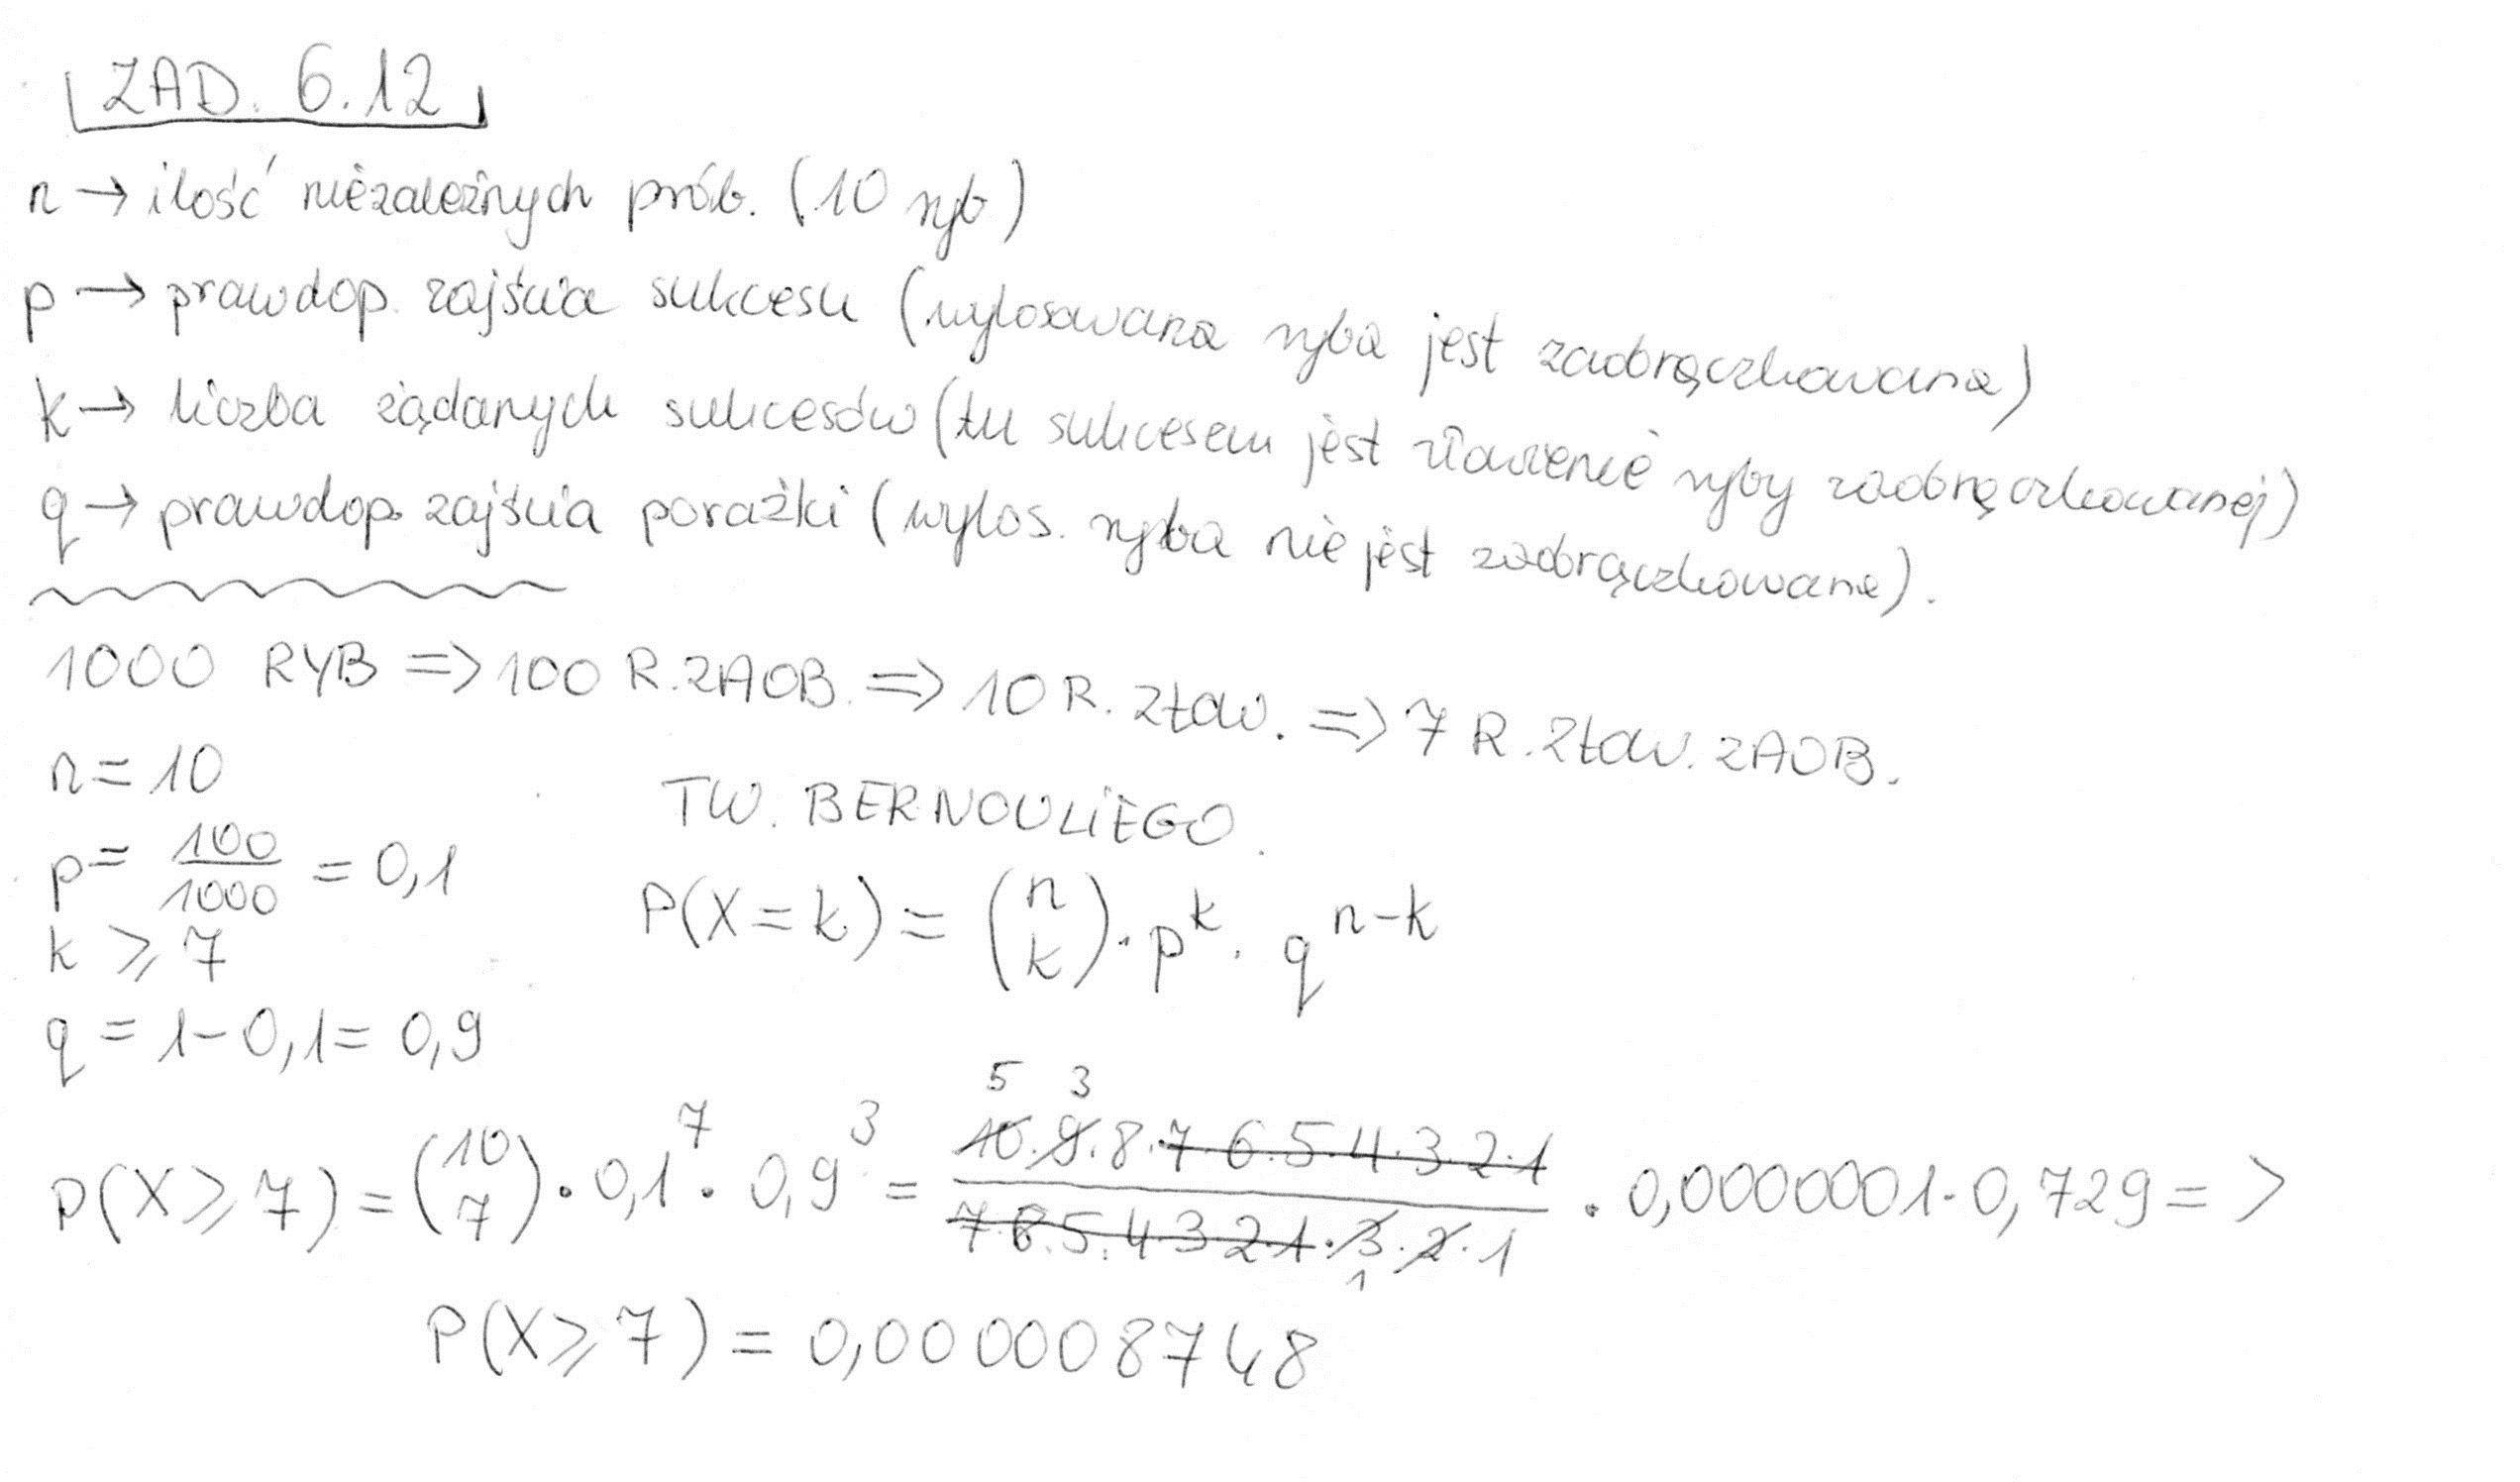 ZAD. 6.12
n → ilość niezależnych prób. (10 ryb)
p → prawdop. zajścia sukcesu (wylosowana ryba jest zaobrączkowana)
k → liczba żądanych sukcesów (tu sukcesem jest złowienie ryby zaobrączkowanej)
q → prawdop. zajścia porażki (wylos. ryba nie jest zaobrączkowana).
1000 RYB => 100 R. ZAOB. => 10 R. złow. => 7 R. złow. ZAOB.
n = 10
TW. BERNOULIEGO.
p = 100/1000 = 0,1
P(X = k) = (n k) · p^k · q^n-k
k ⩾ 7
q = 1 - 0,1 = 0,9
5 3
P(X ⩾ 7) = (10 7) · 0,1^7 · 0,9^3 = 10·9·8·7·6·5·4·3·2·1 / 7·6·5·4·3·2·1·3·2·1 · 0,0000001 · 0,729 = >
1
P(X ⩾ 7) = 0,000008748